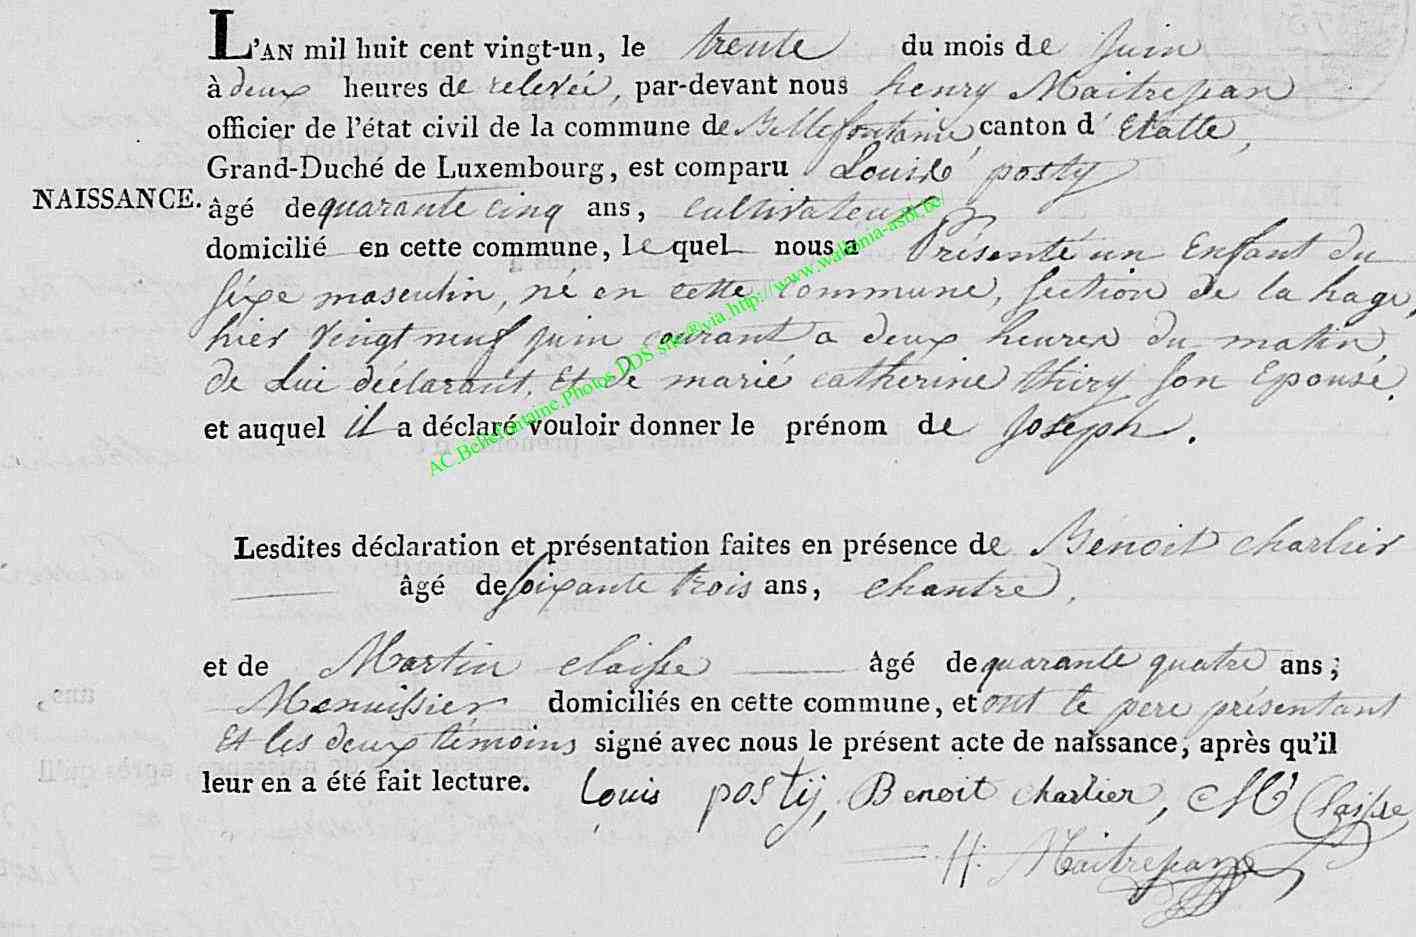 L'AN mil huit cent vingt-un, le trente du mois de juin
à deux heures de relevée, par-devant nous henry Maitrejean
officier de l'état civil de la commune de Bellefontaine, canton d'Etalle,
Grand-Duché de Luxembourg, est comparu Louis posty
NAISSANCE. âgé de quarante cinq ans, cultivateur
domicilié en cette commune, lequel nous a Présenté un Enfant du
séxe masculin, né en cette commune, section de la hage,
hier vingt neuf juin courant a deux heures du matin,
de Lui déclarant, Et de marié catherine thiry son Epouse,
et auquel il a déclaré vouloir donner le prénom de joseph.
AC.Bellefontaine.Photos.DDS site@via.http://www.wallonia-asbl.be/
Lesdites déclaration et présentation faites en présence de Bénoit charlier
âgé de soixante trois ans, chantre,
et de Martin claisse âgé de quarante quatre ans;
Menuissier domiciliés en cette commune, et ont le pere présentant
Et les deux témoins signé avec nous le présent acte de naissance, après qu'il
leur en a été fait lecture. Louis postij, Benoit charlier, M Claisse
H: Maitrejean